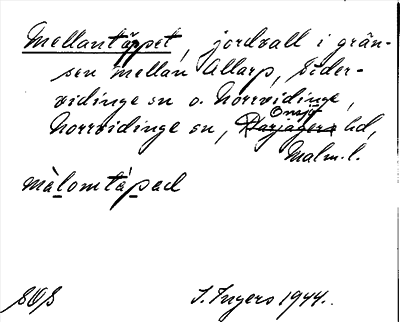 Mellantäppet, jordvall i grän-
sen mellan Allarp, Söder-
vidinge sn o. Norrvidinge,
Onsjö
Norrvidinge sn, Harjagers hd,
Malm. l.
mà̀lomtápad
SOS I. Ingers 1944.